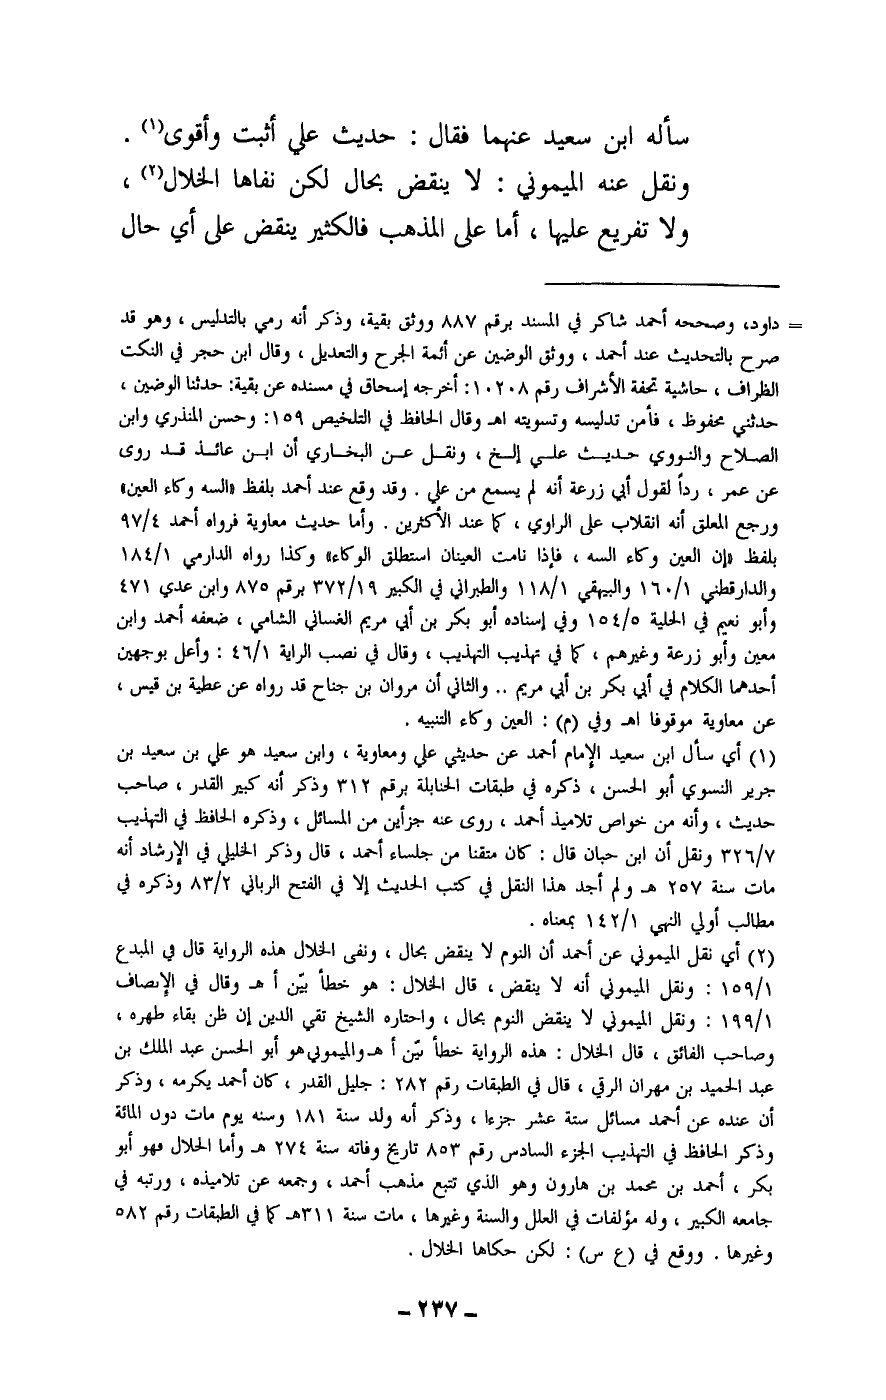 سأله ابن سعيد عنهما فقال : حديث علي أثبت وأقوى(١) .
ونقل عنه الميموني : لا ينقض بحال لكن نفاها الخلال(٢) ،
ولا تفريع عليها ، أما على المذهب فالكثير ينقض على أي حال
= داود، وصححه أحمد شاكر في المسند برقم ٨٨٧ ووثق بقية، وذكر أنه رمي بالتدليس ، وهو قد
صرح بالتحديث عند أحمد ، ووثق الوضين عن أئمة الجرح والتعديل ، وقال ابن حجر في النكت
الظراف ، حاشية تحفة الأشراف رقم ١٠٢٠٨: أخرجه إسحاق في مسنده عن بقية: حدثنا الوضين ،
حدثني محفوظ ، فأمن تدليسه وتسويته اهـ وقال الحافظ في التلخيص ١٥٩: وحسن المنذري وابن
الصلاح والنووي حديث علي إلخ ، ونقل عن البخاري أن ابن عائذ قد روى
عن عمر ، رداً لقول أبي زرعة أنه لم يسمع من علي . وقد وقع عند أحمد بلفظ «السه وكاء العين»
ورجع المعلق أنه انقلاب على الراوي ، كما عند الأكثرين . وأما حديث معاوية فرواه أحمد ٩٧/٤
بلفظ «إن العين وكاء السه ، فإذا نامت العينان استطلق الوكاء» وكذا رواه الدارمي ١٨٤/١
والدارقطني ١٦٠/١ والبيهقي ١١٨/١ والطبراني في الكبير ٣٧٢/١٩ برقم ٨٧٥ وابن عدي ٤٧١
وأبو نعيم في الحلية ١٥٤/٥ وفي إسناده أبو بكر بن أبي مريم الغساني الشامي ، ضعفه أحمد وابن
معين وأبو زرعة وغيرهم ، كما في تهذيب التهذيب ، وقال في نصب الراية ٤٦/١ : وأعل بوجهين
أحدهما الكلام في أبي بكر بن أبي مريم .. والثاني أن مروان بن جناح قد رواه عن عطية بن قيس ،
عن معاوية موقوفا اهـ وفي (م) : العين وكاء التنبيه .
(١) أي سأل ابن سعيد الإمام أحمد عن حديثي علي ومعاوية ، وابن سعيد هو علي بن سعيد بن
جرير النسوي أبو الحسن ، ذكره في طبقات الحنابلة برقم ٣١٢ وذكر أنه كبير القدر ، صاحب
حديث ، وأنه من خواص تلاميذ أحمد ، روى عنه جزأين من المسائل ، وذكره الحافظ في التهذيب
٣٢٦/٧ ونقل أن ابن حبان قال : كان متقنا من جلساء أحمد ، قال وذكر الخليلي في الإرشاد أنه
مات سنة ٢٥٧ هـ ولم أجد هذا النقل في كتب الحديث إلا في الفتح الرباني ٨٣/٢ وذكره في
مطالب أولي النهي ١٤٢/١ بمعناه .
(٢) أي نقل الميموني عن أحمد أن النوم لا ينقض بحال ، ونفى الخلال هذه الرواية قال في المبدع
١٥٩/١ : ونقل الميموني أنه لا ينقض ، قال الخلال : هو خطأ بيّن أ هـ وقال في الإنصاف
١٩٩/١ : ونقل الميموني لا ينقض النوم بحال ، واختاره الشيخ تقي الدين إن ظن بقاء طهره ،
وصاحب الفائق ، قال الخلال : هذه الرواية خطأ بيّن أ هـ والميموني هو أبو الحسن عبد الملك بن
عبد الحميد بن مهران الرقي ، قال في الطبقات رقم ٢٨٢ : جليل القدر ، كان أحمد يكرمه ، وذكر
أن عنده عن أحمد مسائل ستة عشر جزءا ، وذكر أنه ولد سنة ١٨١ وسنه يوم مات دون المائة
وذكر الحافظ في التهذيب الجزء السادس رقم ٨٥٣ تاريخ وفاته سنة ٢٧٤ هـ وأما الخلال فهو أبو
بكر ، أحمد بن محمد بن هارون وهو الذي تتبع مذهب أحمد ، وجمعه عن تلاميذه ، ورتبه في
جامعه الكبير ، وله مؤلفات في العلل والسنة وغيرها ، مات سنة ٣١١هـ كما في الطبقات رقم ٥٨٢
وغيرها . ووقع في (ع س) : لكن حكاها الخلال .
ـ ٢٣٧ ـ